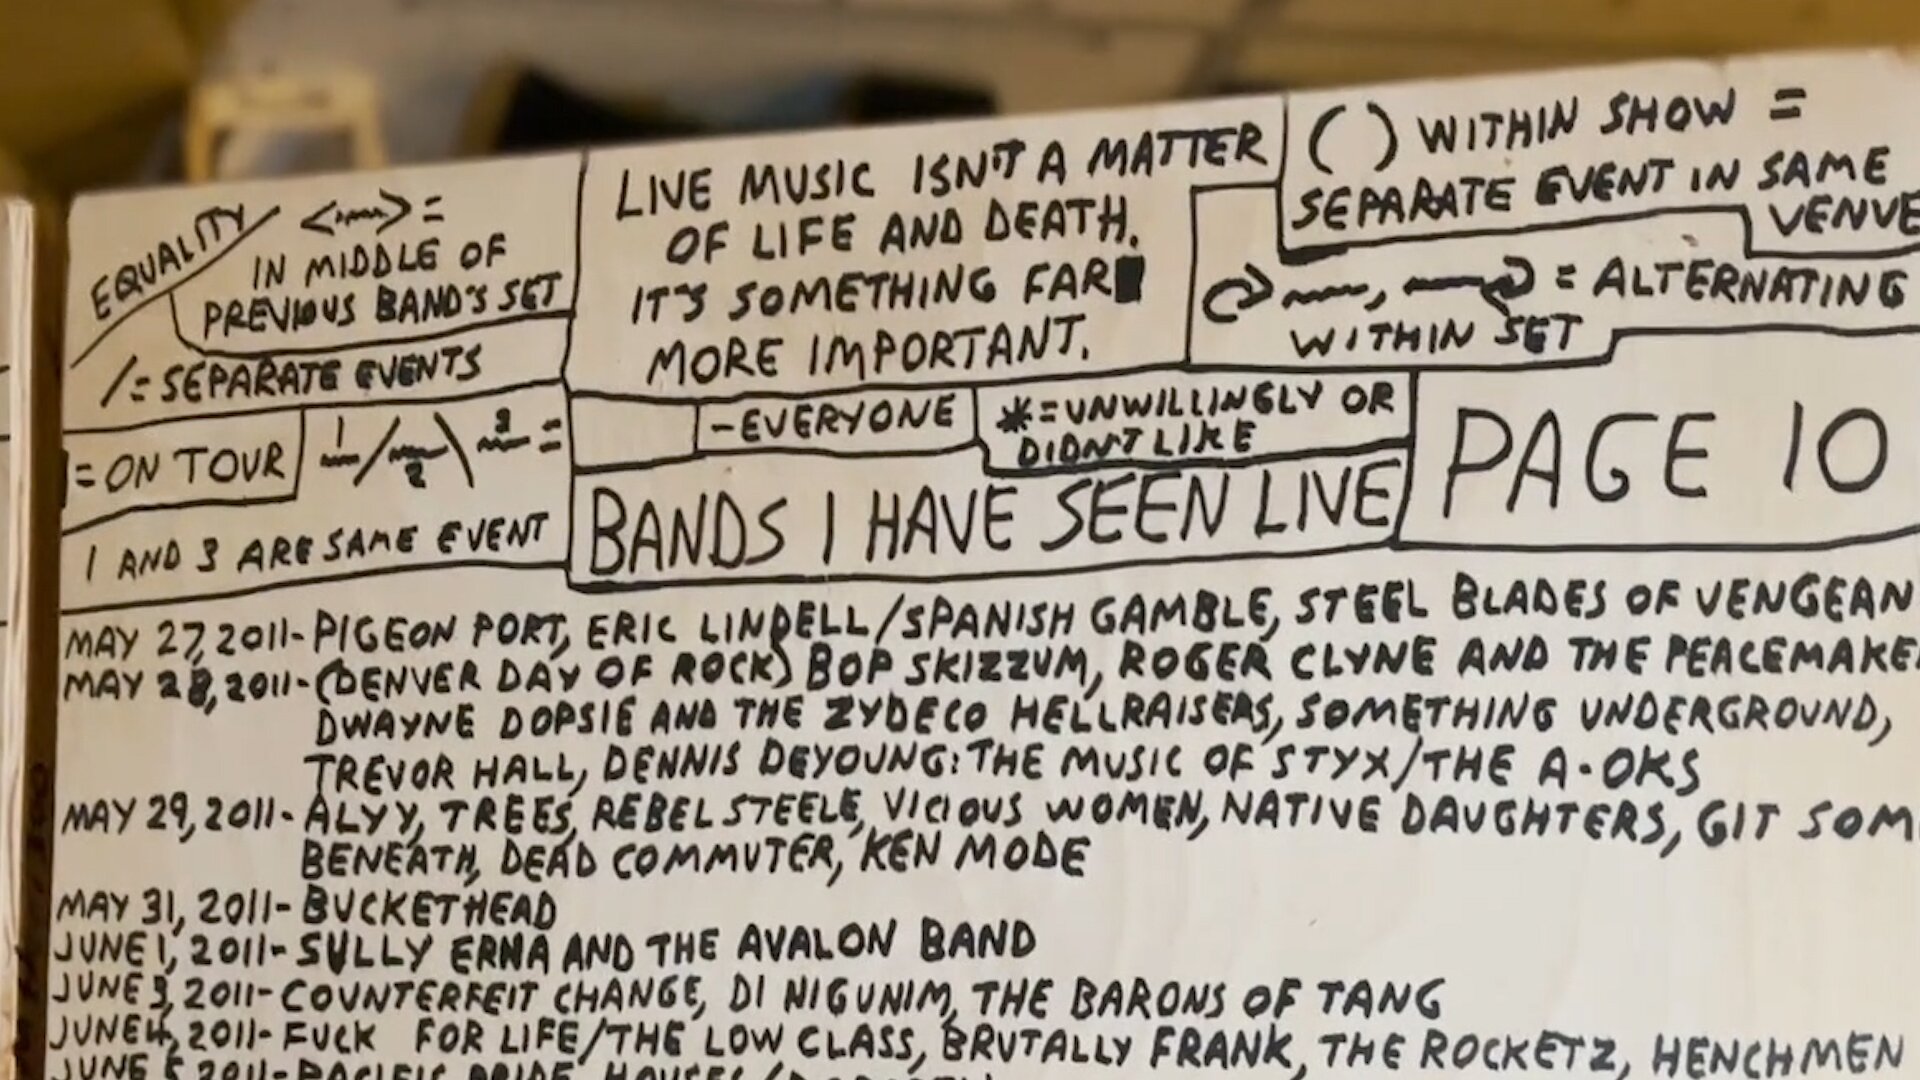 EQUALITY
< > =
IN MIDDLE OF
PREVIOUS BAND'S SET
/ = SEPARATE EVENTS
= ON TOUR
1 / 2 \ 3 =
1 AND 3 ARE SAME EVENT
LIVE MUSIC ISN'T A MATTER
OF LIFE AND DEATH.
IT'S SOMETHING FAR
MORE IMPORTANT.
( ) WITHIN SHOW =
SEPARATE EVENT IN SAME
VENUE
, = ALTERNATING
WITHIN SET
-EVERYONE
* = UNWILLINGLY OR
DIDN'T LIKE
BANDS I HAVE SEEN LIVE
PAGE 10
MAY 27, 2011- PIGEON PORT, ERIC LINDELL/SPANISH GAMBLE, STEEL BLADES OF VENGEAN
MAY 28, 2011- (DENVER DAY OF ROCK) BOP SKIZZUM, ROGER CLYNE AND THE PEACEMAKE
DWAYNE DOPSIE AND THE ZYDECO HELLRAISERS, SOMETHING UNDERGROUND,
TREVOR HALL, DENNIS DEYOUNG: THE MUSIC OF STYX/THE A-OKS
MAY 29, 2011- ALY Y, TREES, REBEL STEELE, VICIOUS WOMEN, NATIVE DAUGHTERS, GIT SOM
BENEATH, DEAD COMMUTER, KEN MODE
MAY 31, 2011- BUCKETHEAD
JUNE 1, 2011- SULLY ERNA AND THE AVALON BAND
JUNE 3, 2011- COUNTERFEIT CHANGE, DI NIGUNIM, THE BARONS OF TANG
JUNE 4, 2011- FUCK FOR LIFE/THE LOW CLASS, BRUTALLY FRANK, THE ROCKETZ, HENCHMEN
JUNE 5 2011- PACIFIC PRIDE, HOUSES